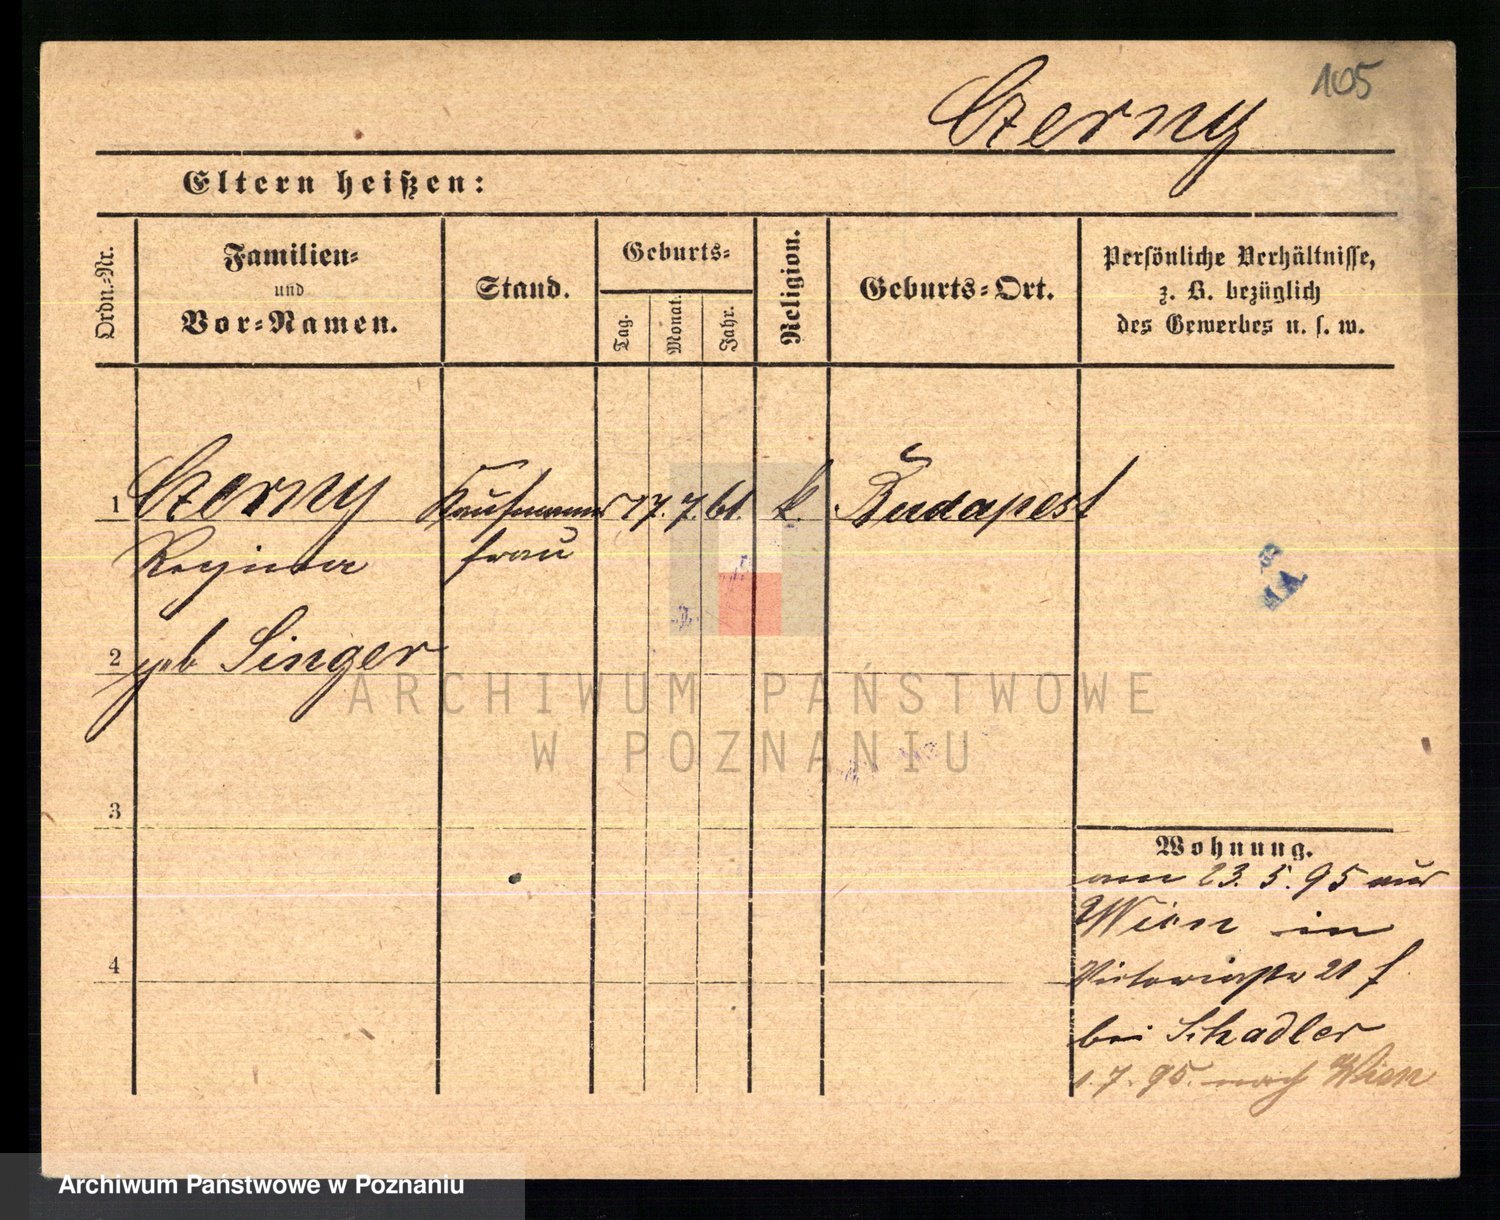 105
Czerny
Eltern heißen:
Ordn.-Nr.
Familien-
und
Vor-Namen.
Stand.
Geburts-
Tag.
Monat.
Jahr.
Religion.
Geburts-Ort.
Persönliche Verhältnisse,
z. B. bezüglich
des Gewerbes u. s. w.
1 Czerny Kaufmanns 17. 7. 61. k. Budapest
Regina frau
2 geb Singer
ARCHIWUM PAŃSTWOWE
W POZNANIU
3
Wohnung.
am 23. 5. 95 aus
Wien in
4
Victoriastr 21 f
bei Schadler
1. 7. 95. nach Wien
Archiwum Państwowe w Poznaniu